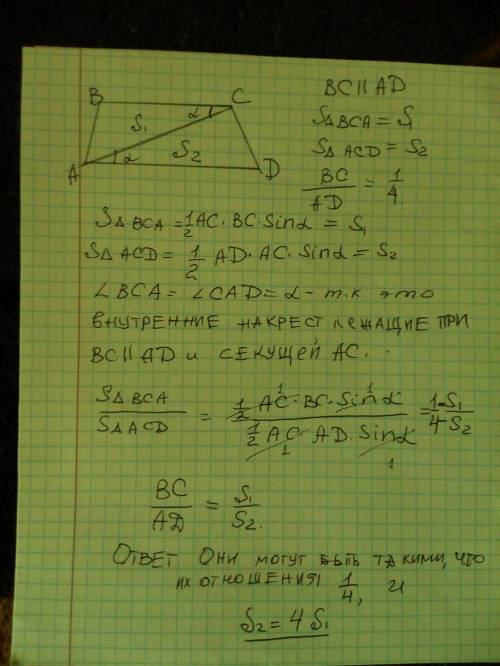 BC || AD
B C
S₁ α
S△BCA = S₁
α S₂
S△ACD = S₂
A D
BC/AD = 1/4.
S△BCA = 1/2 AC · BC · Sinα = S₁
S△ACD = 1/2 AD · AC · Sinα = S₂
∠BCA = ∠CAD = α – т.к это
внутренние накрест лежащие при
BC || AD и секущей AC.
S△BCA/S△ACD = (1/2 AC · BC · Sinα)/(1/2 AC · AD · Sinα) = 1·S₁/4S₂
BC/AD = S₁/S₂.
Ответ Они могут быть такими, что
их отношения 1/4, и
S₂ = 4 S₁